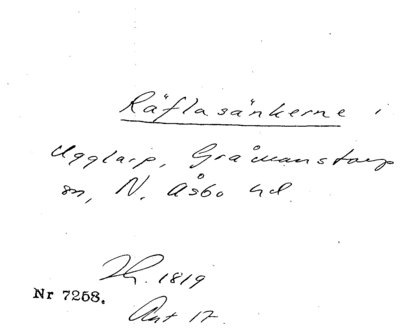 Räflasänkerne i
Ugglarp, Gråmanstorp
sn, N. Åsbo hd.
1819
Nr 7258.
Ant 17.